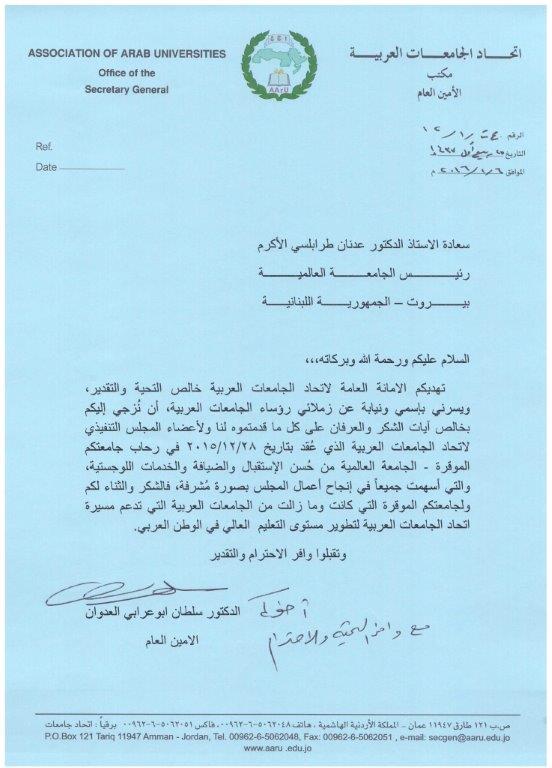 ASSOCIATION OF ARAB UNIVERSITIES
Office of the
Secretary General
اتحاد الجامعات العربية
مكتب
الأمين العام
AArU
Ref.
Date
الرقم
التاريخ
الموافق ٢٠١٦/١/٦ م
سعادة الاستاذ الدكتور عدنان طرابلسي الأكرم
رئيس الجامعة العالمية
بيروت – الجمهورية اللبنانية
السلام عليكم ورحمة الله وبركاته،،،
تهديكم الامانة العامة لاتحاد الجامعات العربية خالص التحية والتقدير،
ويسرني بإسمي ونيابة عن زملائي رؤساء الجامعات العربية، أن نُزجي إليكم
بخالص آيات الشكر والعرفان على كل ما قدمتموه لنا ولأعضاء المجلس التنفيذي
لاتحاد الجامعات العربية الذي عُقد بتاريخ ٢٠١٥/١٢/٢٨ في رحاب جامعتكم
الموقرة - الجامعة العالمية من حُسن الإستقبال والضيافة والخدمات اللوجستية،
والتي أسهمت جميعاً في إنجاح أعمال المجلس بصورة مُشرفة، فالشكر والثناء لكم
ولجامعتكم الموقرة التي كانت وما زالت من الجامعات العربية التي تدعم مسيرة
اتحاد الجامعات العربية لتطوير مستوى التعليم العالي في الوطن العربي.
وتقبلوا وافر الاحترام والتقدير
أخوكم
الدكتور سلطان ابوعرابي العدوان
مع وافر التحية والاحترام
الامين العام
ص.ب ١٢١ طارق ١١٩٤٧ عمان – المملكة الأردنية الهاشمية ، هاتف ٥٠٦٢٠٤٨-٦-٠٠٩٦٢، فاكس ٥٠٦٢٠٥١-٦-٠٠٩٦٢ برقياً : اتحاد جامعات
P.O.Box 121 Tariq 11947 Amman - Jordan, Tel: 00962-6-5062048, Fax: 00962-6-5062051 , e-mail: secgen@aaru.edu.jo
www.aaru .edu.jo